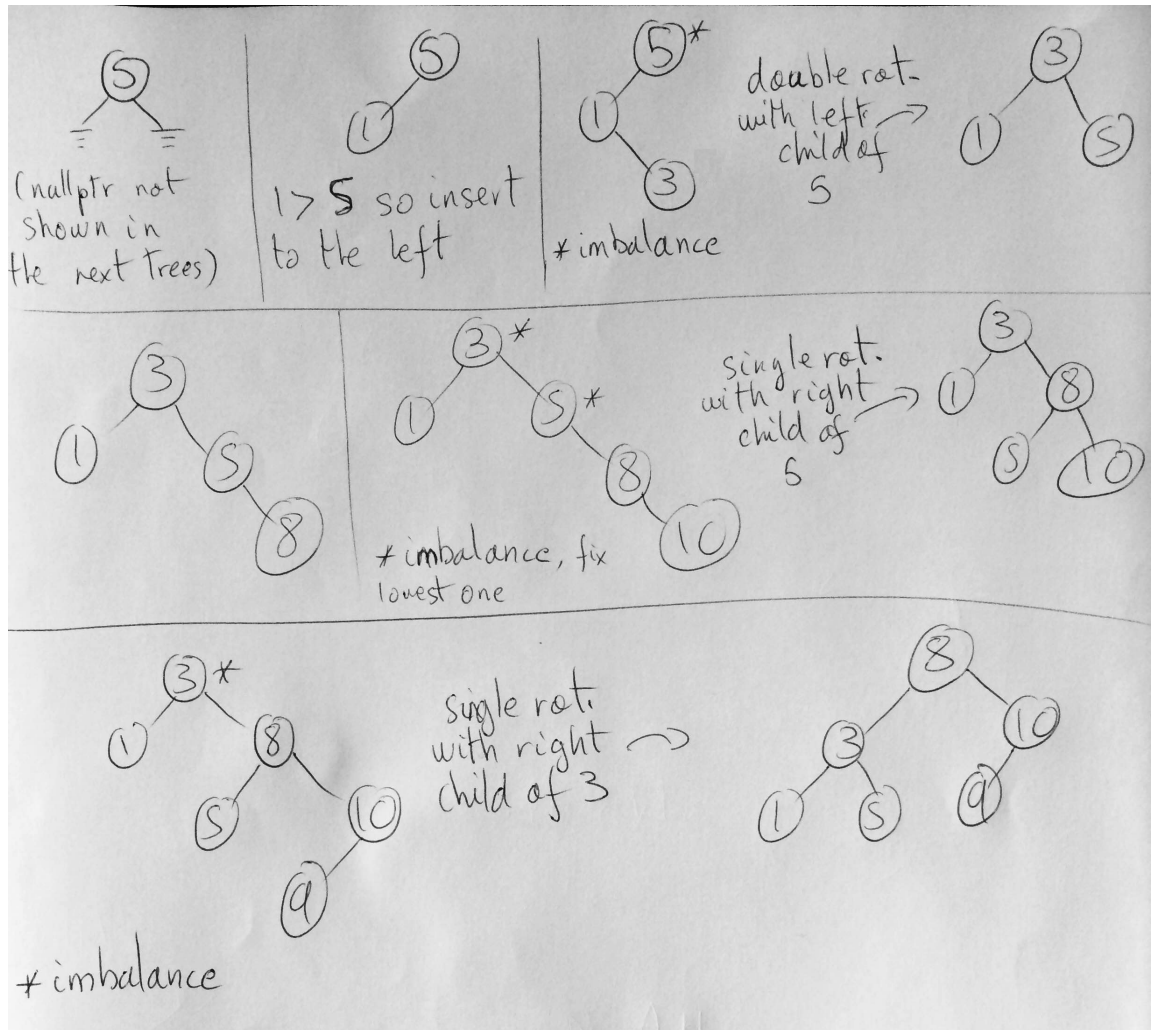 5
(nullptr not
shown in
the next trees)
5
1
1 > 5 so insert
to the left
5*
1
3
* imbalance
double rot.
with left
child of
5
3
1
5
3
1
5
8
3*
1
5*
8
10
* imbalance, fix
lowest one
single rot.
with right
child of
5
3
1
8
5
10
3*
1
8
5
10
9
* imbalance
single rot.
with right
child of 3
8
3
10
1
5
9